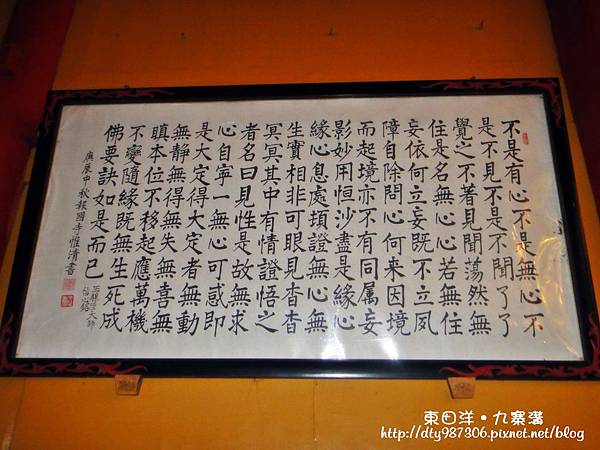 不是有心不是無心不
是不見不是不聞了了
覺之不著見聞蕩然無
住是名無心心若無住
妄依何立妄既不立夙
障自除問心何来因境
而起境亦不有同属妄
影妙用恒沙盡是緣心
緣心息處頓證無心無
生實相非可眼見杳杳
冥冥其中有情證悟之
者名曰見性是故無求
心自寧一無心可感即
是大定得大定者無動
無静無得無失無喜無
瞋本位不移起應萬機
不變隨緣既無生死成
佛要訣如是而已
庚辰中秋報國寺惟清書
大師
東田洋•九寨溝
http://dty987306.pixnet.net/blog